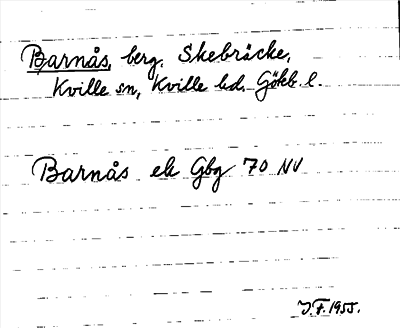 Barnås, berg. Skebräcke,
Kville sn, Kville hd. Gökb. l.
Barnås ek Gbg 70 NV
J.F. 1955.